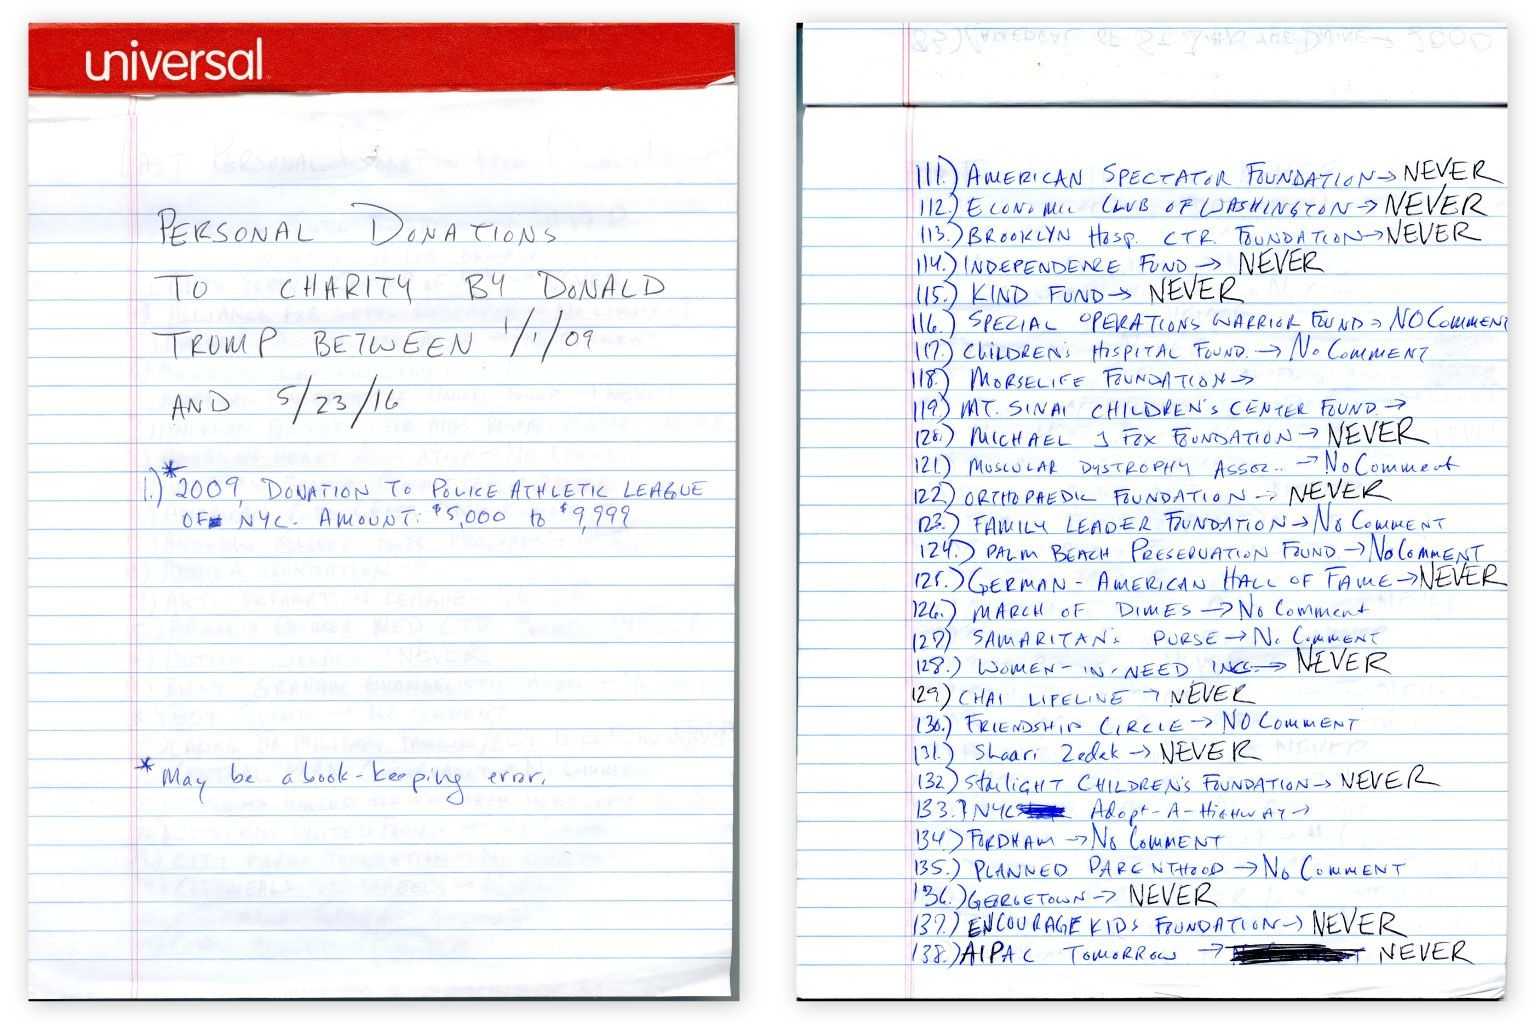 universal
PERSONAL DONATIONS
TO CHARITY BY DONALD
TRUMP BETWEEN 1/1/09
AND 5/23/16
1.)* 2009, DONATION TO POLICE ATHLETIC LEAGUE
OF NYC. AMOUNT: $5,000 to $9,999
* May be a book-keeping error.
111.) AMERICAN SPECTATOR FOUNDATION → NEVER
112.) ECONOMIC CLUB OF WASHINGTON → NEVER
113.) BROOKLYN HOSP. CTR. FOUNDATION → NEVER
114.) INDEPENDENCE FUND → NEVER
115.) KIND FUND → NEVER
116.) SPECIAL OPERATIONS WARRIOR FUND → NO COMMENT
117.) CHILDREN'S HOSPITAL FUND. → No COMMENT
118.) MORSELIFE FOUNDATION →
119.) MT. SINAI CHILDREN'S CENTER FUND →
120.) MICHAEL J FOX FOUNDATION → NEVER
121.) MUSCULAR DYSTROPHY ASSOC.. → No Comment
122.) ORTHOPAEDIC FOUNDATION → NEVER
123.) FAMILY LEADER FOUNDATION → No COMMENT
124.) PALM BEACH PRESERVATION FUND → No COMMENT
125.) GERMAN-AMERICAN HALL OF FAME → NEVER
126.) MARCH OF DIMES → No Comment
127.) SAMARITAN'S PURSE → No COMMENT
128.) WOMEN-IN-NEED INC → NEVER
129.) CHAI LIFELINE → NEVER
130.) FRIENDSHIP CIRCLE → NO COMMENT
131.) Shaari Zedek → NEVER
132.) STARLIGHT CHILDREN'S FOUNDATION → NEVER
133.) NYC Adopt-A-HIGHWAY →
134.) FORDHAM → No COMMENT
135.) PLANNED PARENTHOOD → No COMMENT
136.) GEORGETOWN → NEVER
137.) ENCOURAGE KIDS FOUNDATION → NEVER
138.) AIPAC TOMORROW → NEVER